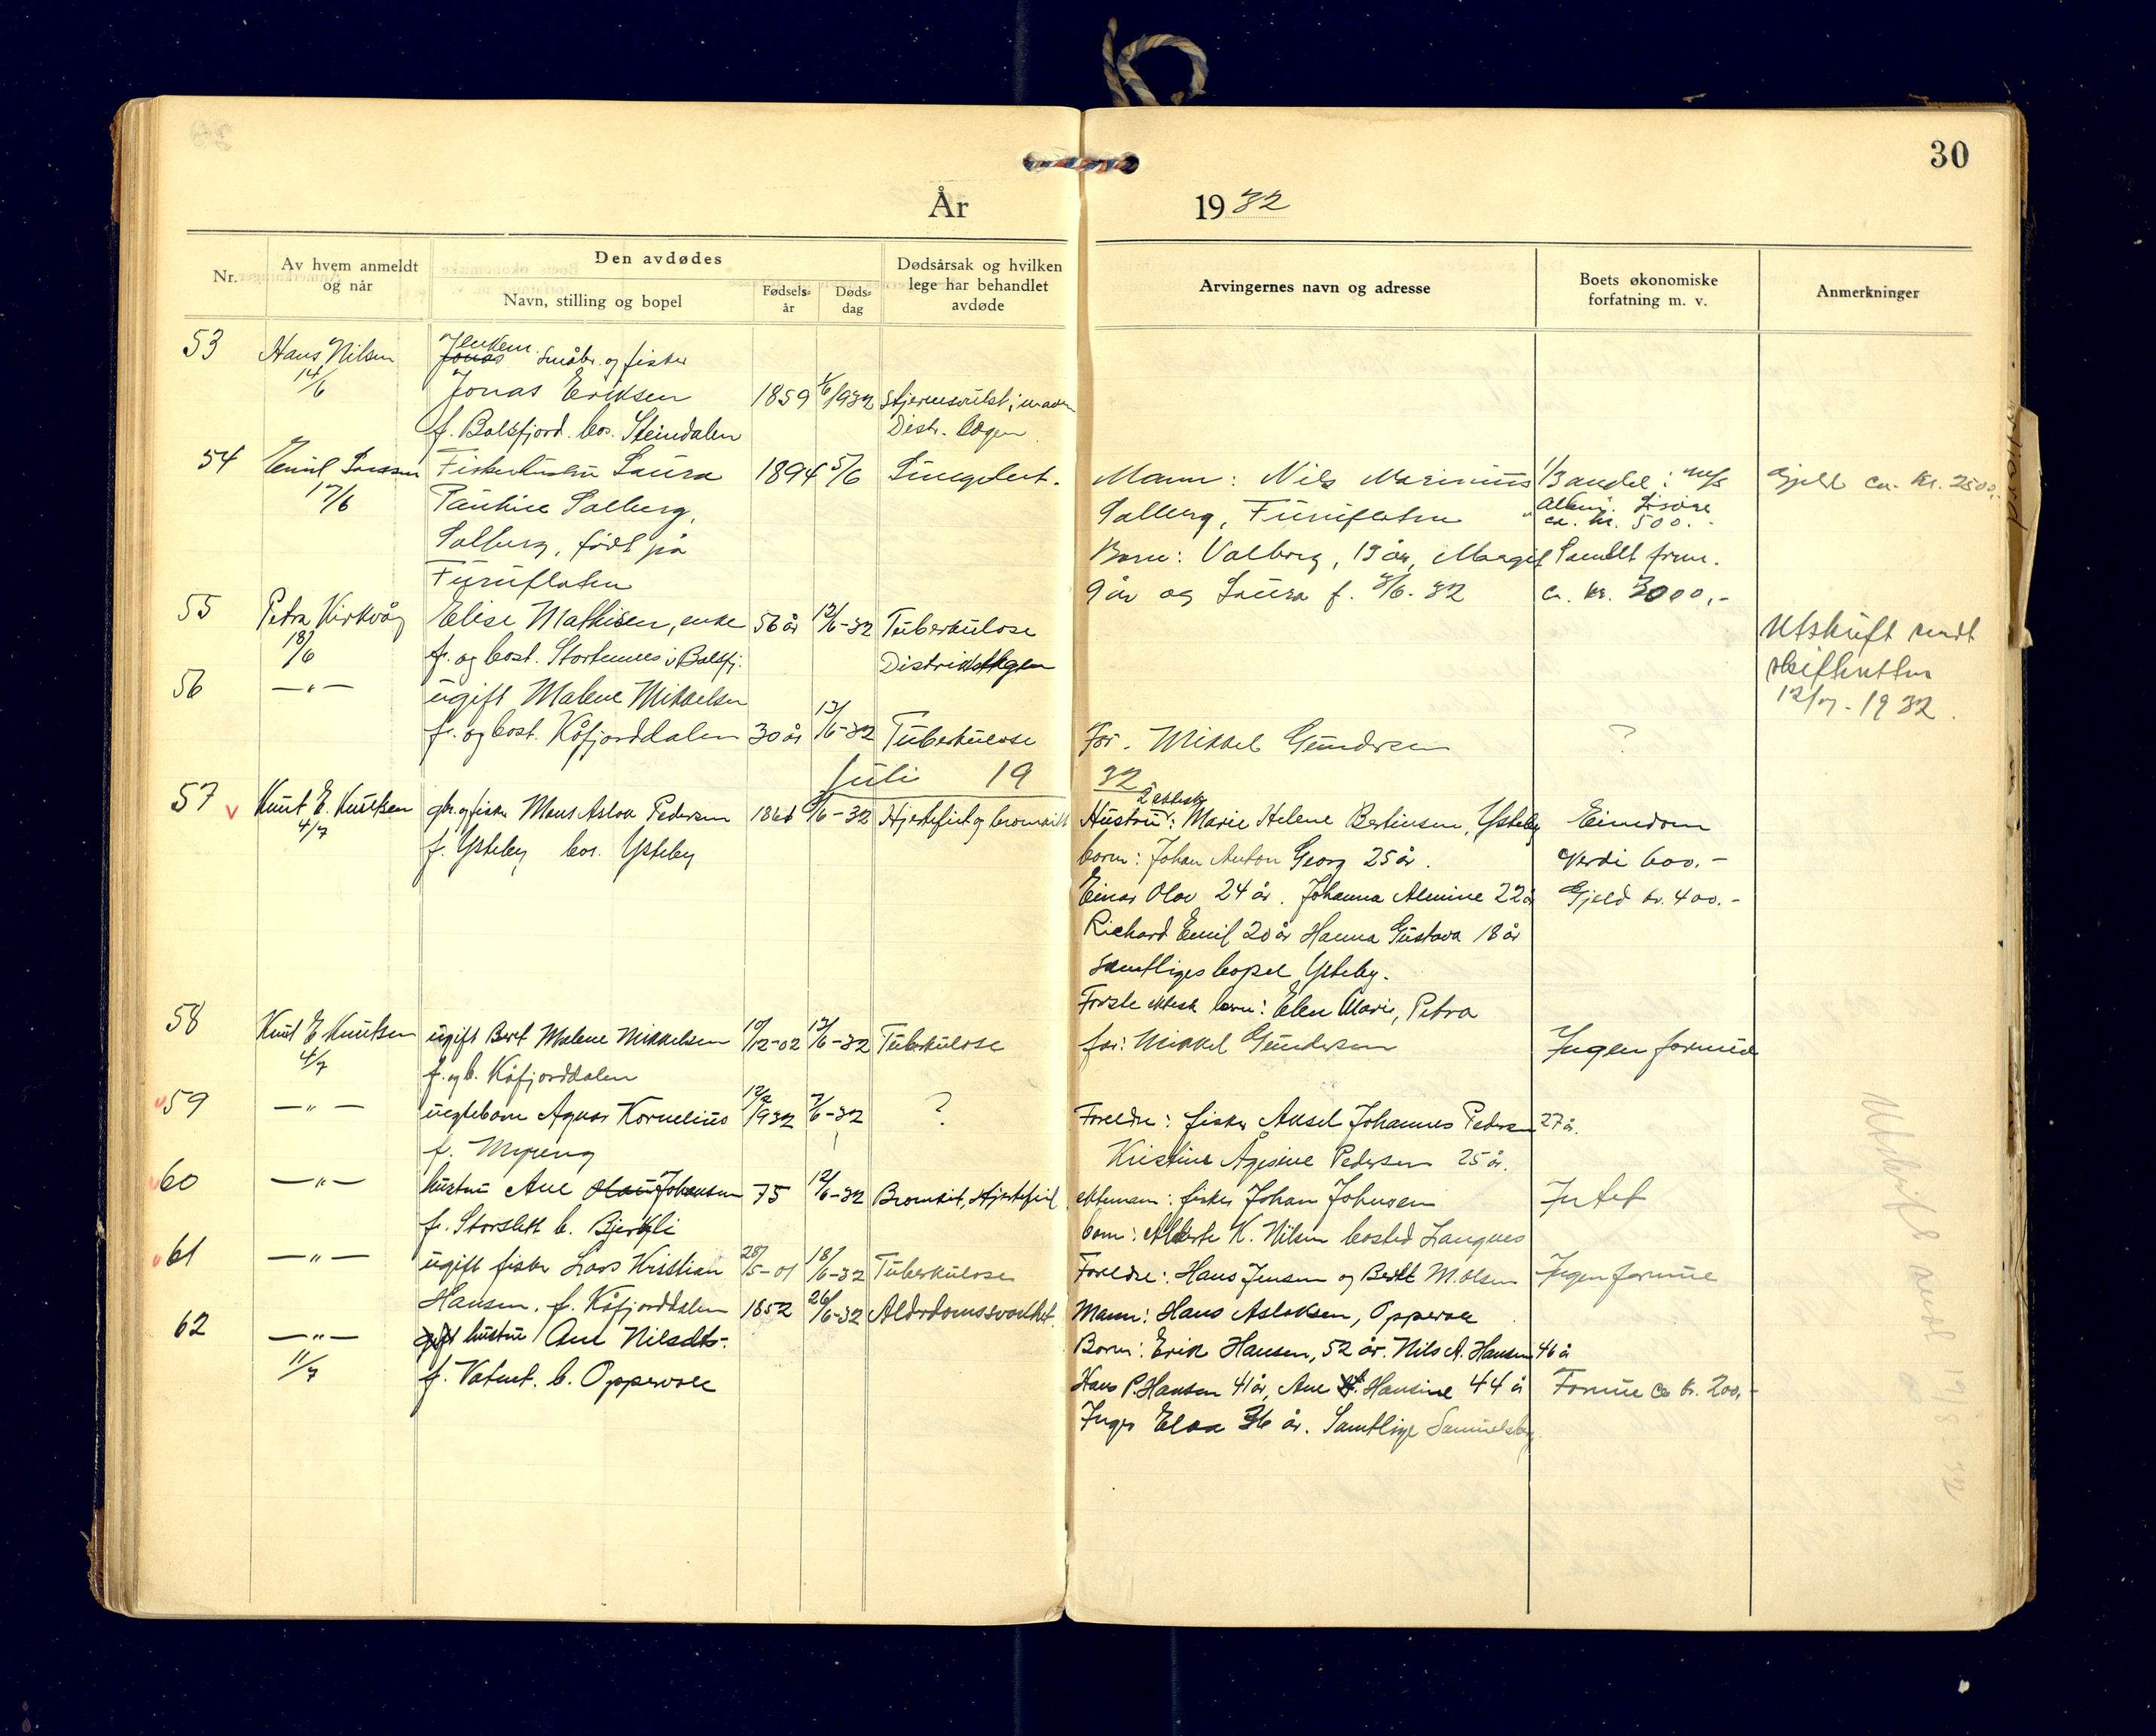 30
År 1932
Nr.
Av hvem anmeldt og når
Den avdødes
Navn, stilling og bopel
Fødselsår
Dødsdag
Dødsårsak og hvilken lege har behandlet avdøde
Arvingernes navn og adresse
Boets økonomiske forfatning m. v.
Anmerkninger
53 Hans Nilsen
14/6
Jonas småbr. og fisker
Jonas Eriksen 1859 1932
f. Balsfjord. bos. Steindalen Distr. lægen
54 Emil 17/6 Laura 1894 5/6
Solberg, født på
Furuflaten
Mann: Nils Marinius 1/3 andel i m/s
Solberg, Furuflaten ca. kr. 500.-
Barn: Valborg, 13 år, Margit
9 år og Laura f. 32 ca. kr. 3000,-
Gjeld ca. kr. 2500,-
55 Petra Kirkvåg 18/6
Elise Mathisen, enke 56 år 12/6-32 Tuberkulose
f. og bost. Stortennes i Balsfj. Distriktslægen
Utskrift sendt
skifteretten
12/7-1932.
56 —"—
ugift Malene Mikkelsen
f. og bost. Kåfjorddalen 30 år 13/6-32 Tuberkulose
Far. Mikkel Gundersen ?
Juli 1932
57 Knut E. Knutsen 4/7
gbr. og fisker Mons Aslak Pedersen 6-32 Hjertefeil og bronkitt
f. Ysteby bos. Ysteby
2 ektesk.
Hustru: Marie Helene Bertinsen, Ysteby
barn: Johan Anton Georg 25 år.
Einar Olav 24 år. Johanna Almine 22 år
Richard Emil 20 år Hanna Gustava 18 år
samtliges bopel Ysteby.
Første ektesk barn: Elen Marie, Petra
Eiendom
verdi 600.-
Gjeld kr. 400.-
58 Knut E Knutsen 4/7
ugift Berit Malene Mikkelsen 10/12-02 13/6-32 Tuberkulose
f. og b. Kåfjorddalen
far: Mikkel Gundersen
Ingen formue
59 —"—
uegtebarn Agnar Kornelius 1932 7/6-32 ?
f. Myreng
Foreldre: fisker Aksel Johannes Pedersen 27 år.
Kristine Ågesine Pedersen 25 år.
60 —"—
hustru Ane Johansen 75 12/6-32 Bronkit, Hjertefeil
f. Storslett b. Bjerkli
ektemann: fisker Johan Johnsen
barn: Alberte K. Nilsen bosted Langnes
Intet
61 —"—
ugift fisker Lars Kristian 28/5-01 18/6-32 Tuberkulose
Hansen. f. Kåfjorddalen
Foreldre: Hans Jensen og Berit M. Olsen
Ingen formue
62 —"— 11/7
gift hustru Ane Nilsdtr. 1852 26/6-32 Alderdomssvakhet.
f. Vatnet. b. Oppervoll
Mann: Hans Aslaksen, Oppervoll
Barn: Erik Hansen, 52 år. Nils A. Hansen 46 år
Hans P. Hansen 41 år, Ane Hansine 44 år
Inger Elea 36 år. Samtlige Samuelsberg
Formue ca kr. 200,-
Utskrift sendt 19/8 32